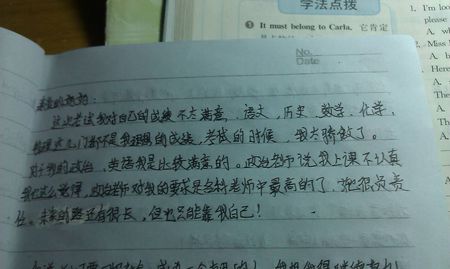 学法点拨
1. I'm loo
please
1 It must belong to Carla. 它肯定
A. w
2. Miss
No.
Date
A. h
Here
A.
The
A.
The
A.
亲爱的妈妈:
这次考试我对自己的成绩不太满意,语文,历史,数学,化学,
物理这几门都不是我理想的成绩,考试的时候,我太骄傲了。
对于我的政治,英语我是比较满意的。政治老师说我上课不认真
我也这么觉得,政治老师对我的要求是各科老师中最高的了,她很负责
任。未来的路还有很长,但也只能靠我自己!